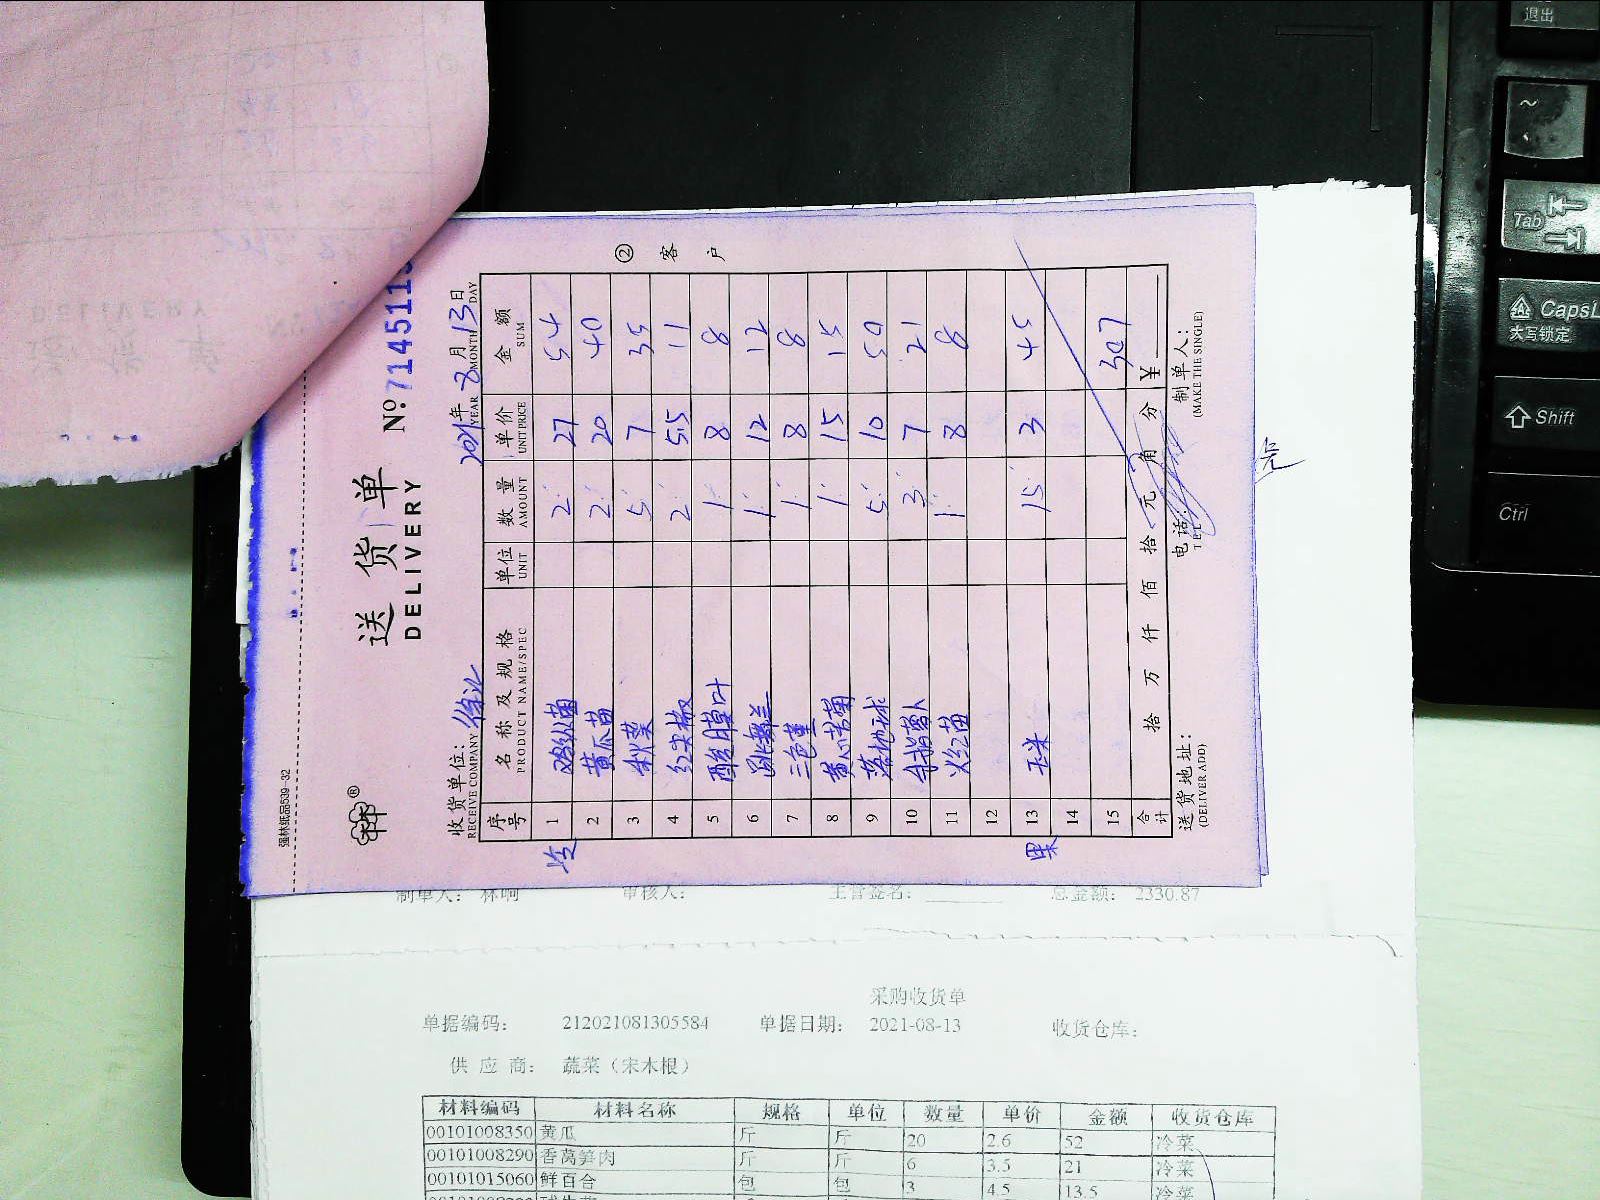 强林纸品539-32
送货单
DELIVERY
No 7145111
收货单位: 徐汇
RECEIVE COMPANY
2021年8月13日
YEAR MONTH DAY
序号 名称及规格 单位 数量 单价 金额
PRODUCT NAME/SPEC UNIT AMOUNT UNIT PRICE SUM
冷 1 鸡纵菌 2 27 54
2 黄瓜苗 2 20 40
3 秋葵 5 7 35
4 红尖椒 2 5.5 11
5 酸膜叶 1 8 8
6 跳舞兰 1 12 12
7 三色堇 1 8 8
8 黄心苦菊 1 15 15
9 落地球 5 10 50
10 手指萝卜 3 7 21
11 火红苗 1 8 8
12
果 13 玉米 15 3 45
14
15 307
合计 拾 万 仟 佰 拾 元 角 分 ¥
送货地址:
(DELIVER ADD)
电话:
TEL
制单人:
(MAKE THE SINGLE)
② 客户
制单人: 林响 审核人: 主管签名: 总金额: 2330.87
采购收货单
单据编码: 212021081305584 单据日期: 2021-08-13 收货仓库:
供应商: 蔬菜（宋木根）
材料编码 材料名称 规格 单位 数量 单价 金额 收货仓库
00101008350 黄瓜 斤 斤 20 2.6 52 冷菜
00101008290 香莴笋肉 斤 斤 6 3.5 21 冷菜
00101015060 鲜百合 包 包 3 4.5 13.5 冷菜
退出
~
Tab
CapsL
大写锁定
Shift
Ctrl